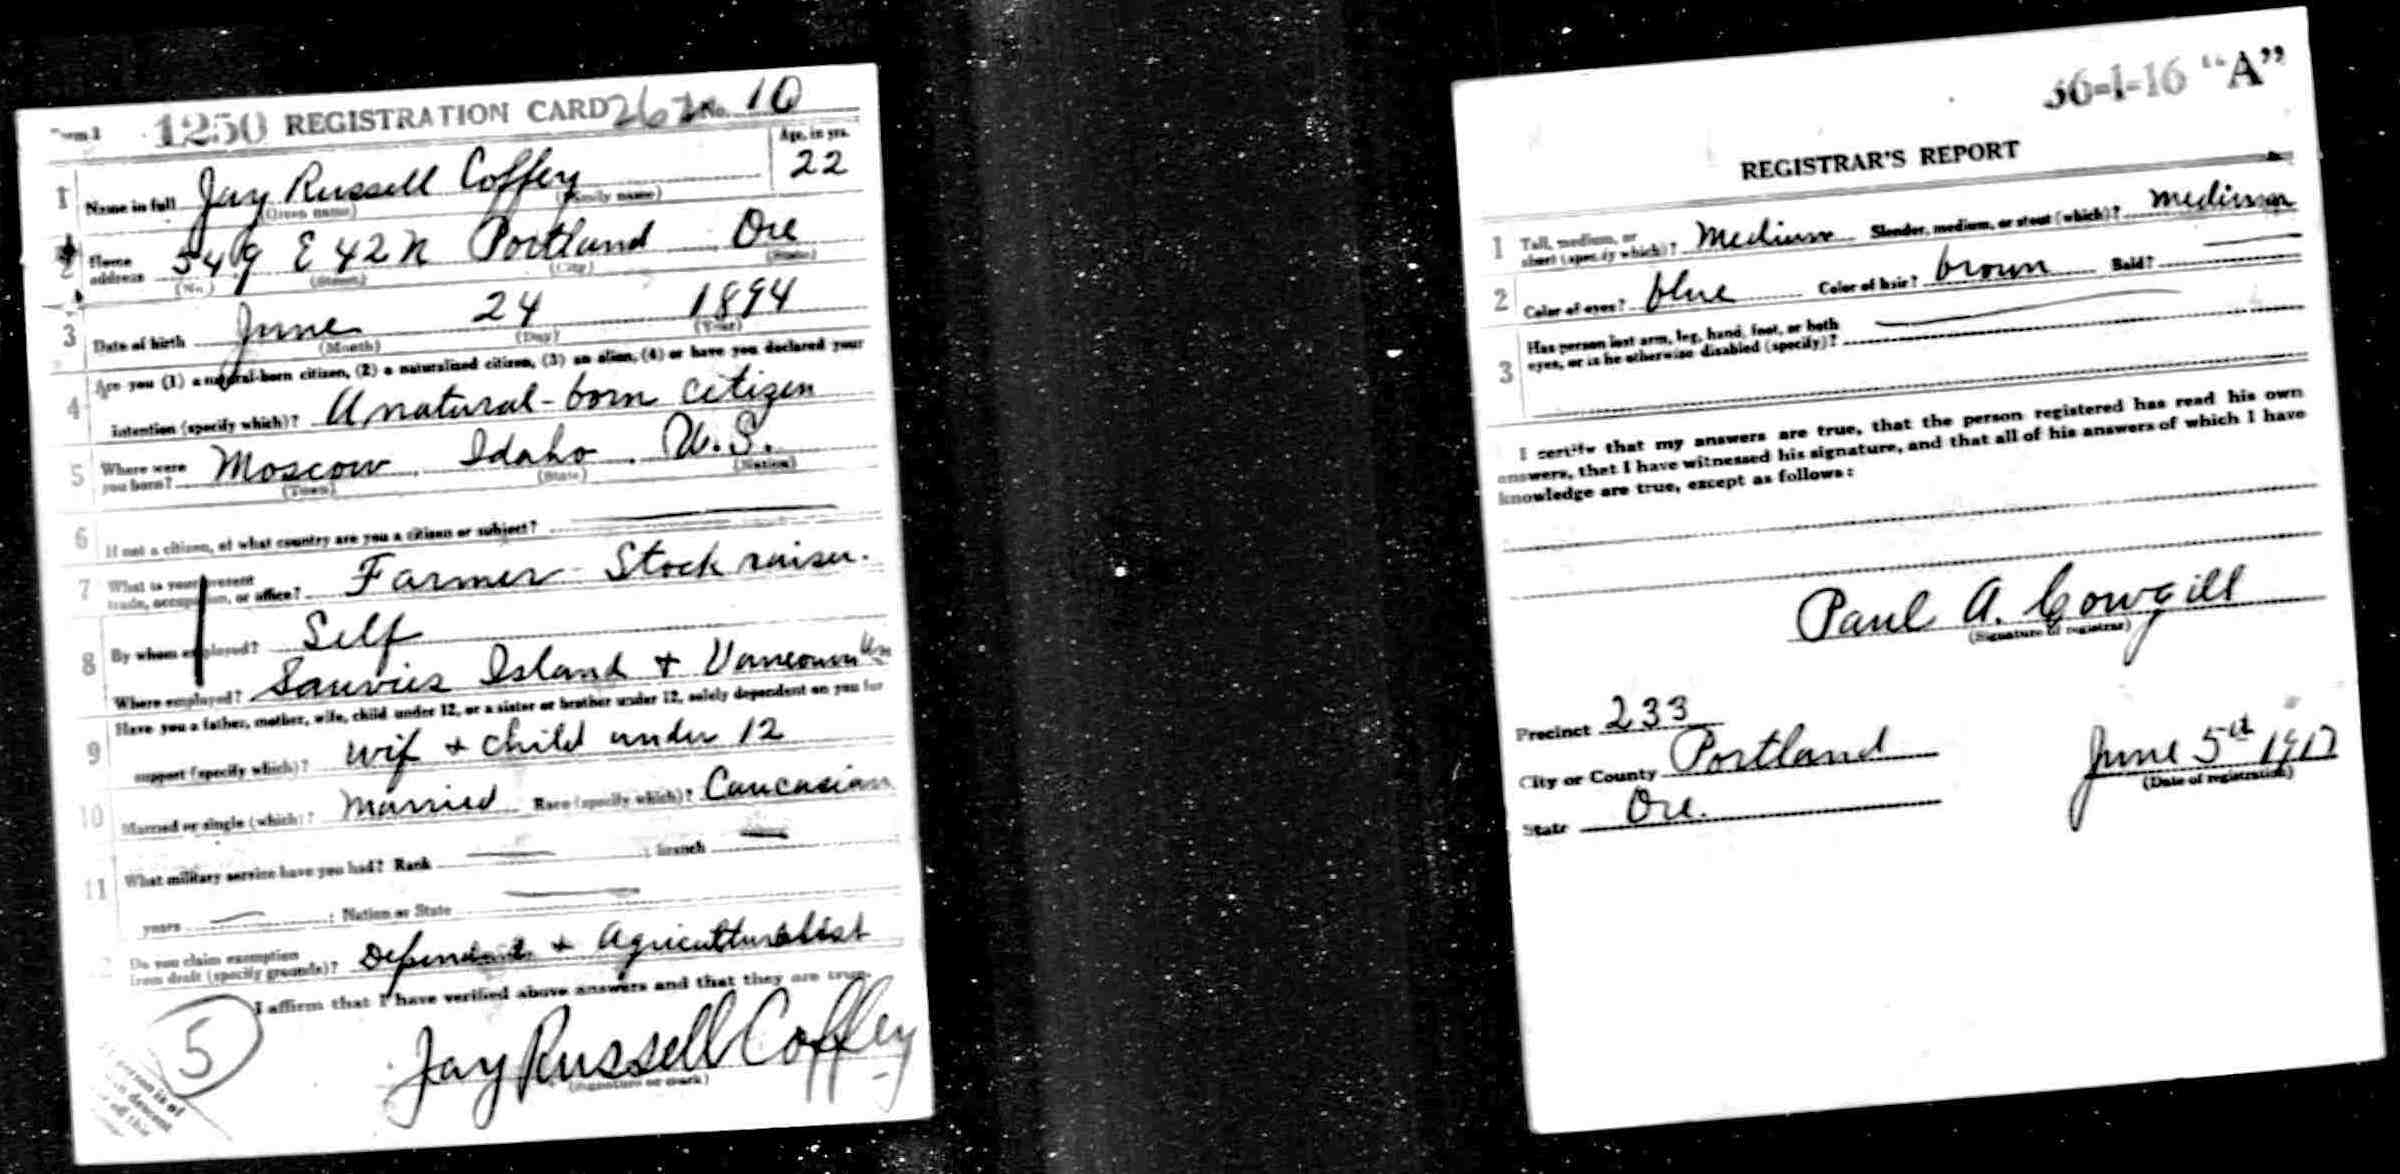 1250 REGISTRATION CARD 262 No. 10
Age, in yrs.
1 Name in full Jay Russell Coffey 22
(Given name) (Family name)
2 Home address 549 E 42 N Portland Ore
(No.) (Street) (City) (State)
3 Date of birth June 24 1894
(Month) (Day) (Year)
Are you (1) a natural-born citizen, (2) a naturalized citizen, (3) an alien, (4) or have you declared your
4 intention (specify which)? A natural-born citizen
5 Where were you born? Moscow Idaho U.S.
(Town) (State) (Nation)
6 If not a citizen, of what country are you a citizen or subject?
7 What is your present trade, occupation, or office? Farmer - Stock raiser.
8 By whom employed? Self
Where employed? Sauvies Island + Vancouver
Have you a father, mother, wife, child under 12, or a sister or brother under 12, solely dependent on you for
9 support (specify which)? wif + child under 12
10 Married or single (which)? Married Race (specify which)? Caucasian
11 What military service have you had? Rank ; branch
years ; Nation or State
12 Do you claim exemption from draft (specify grounds)? + Agriculturalist
I affirm that I have verified above answers and that they are true.
Jay Russell Coffey
(Signature or mark)
5
person is of
descent
off this
36-1-16 "A"
REGISTRAR'S REPORT
1 Tall, medium, or short (specify which)? Medium Slender, medium, or stout (which)? Medium
2 Color of eyes? blue Color of hair? brown Bald?
3 Has person lost arm, leg, hand, foot, or both
eyes, or is he otherwise disabled (specify)?
I certify that my answers are true, that the person registered has read his own
answers, that I have witnessed his signature, and that all of his answers of which I have
knowledge are true, except as follows:
Paul A. Cowgill
(Signature of registrar)
Precinct 233
City or County Portland
June 5th 1917
(Date of registration)
State Ore.